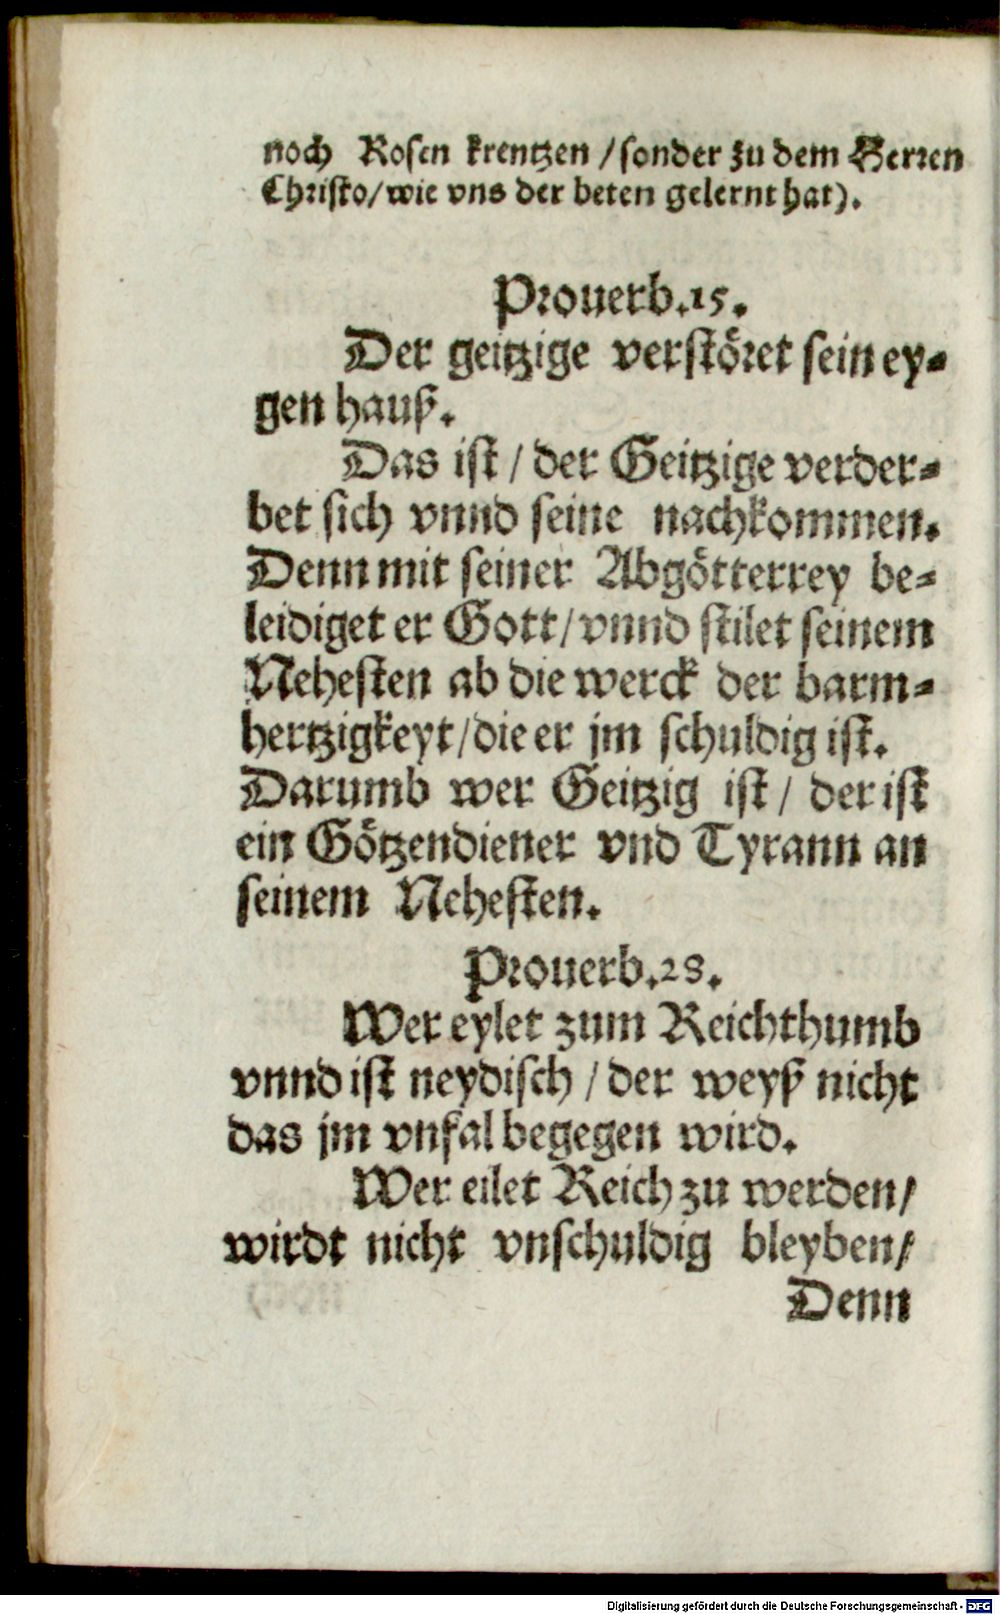 noch Rosen krentzen / sonder zu dem Herren
Christo / wie vns der beten gelernt hat).
Prouerb. 15.
Der geitzige verstöret sein ey-
gen hauß.
Das ist / der Geitzige verder-
bet sich vnnd seine nachkommen.
Denn mit seiner Abgötterrey be-
leidiget er Gott / vnnd stilet seinem
Nehesten ab die werck der barm-
hertzigkeyt / die er jm schuldig ist.
Darumb wer Geitzig ist / der ist
ein Götzendiener vnd Tyrann an
seinem Nehesten.
Prouerb. 28.
Wer eylet zum Reichthumb
vnnd ist neydisch / der weyß nicht
das jm vnfal begegen wird.
Wer eilet Reich zu werden /
wirdt nicht vnschuldig bleyben /
Denn
Digitalisierung gefördert durch die Deutsche Forschungsgemeinschaft - DFG